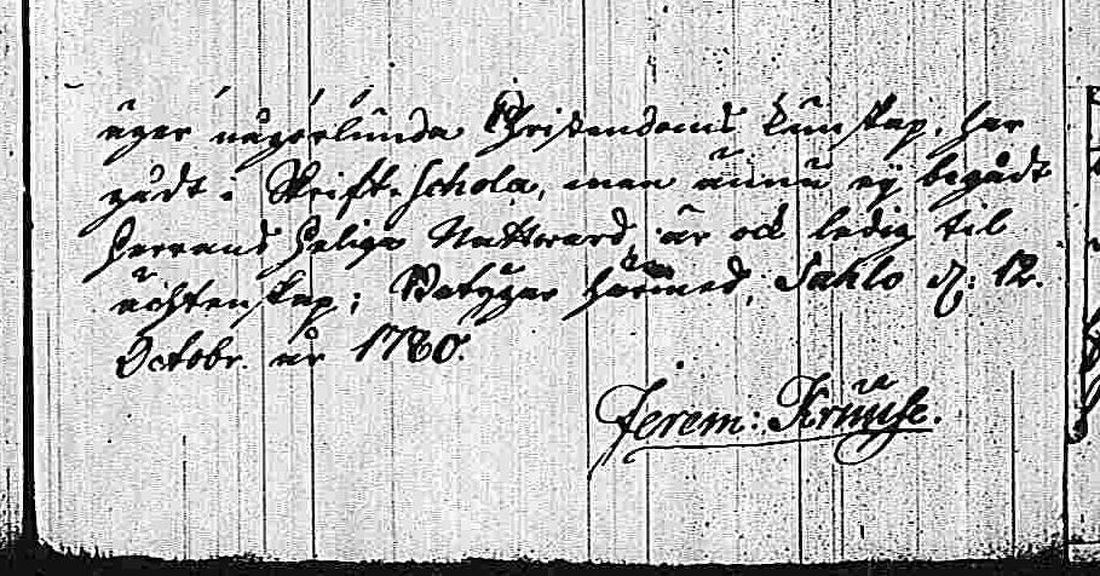 äger någorlunda Christendoms kunskap, har
gådt i Skrift-Schola, men ännu ej begådt
Herrans Heliga Nattward, är ock ledig til
ächtenskap; Betygar härmed, Sahlo d: 12.
Octobr. år 1780.
Jerem: Kruuse.